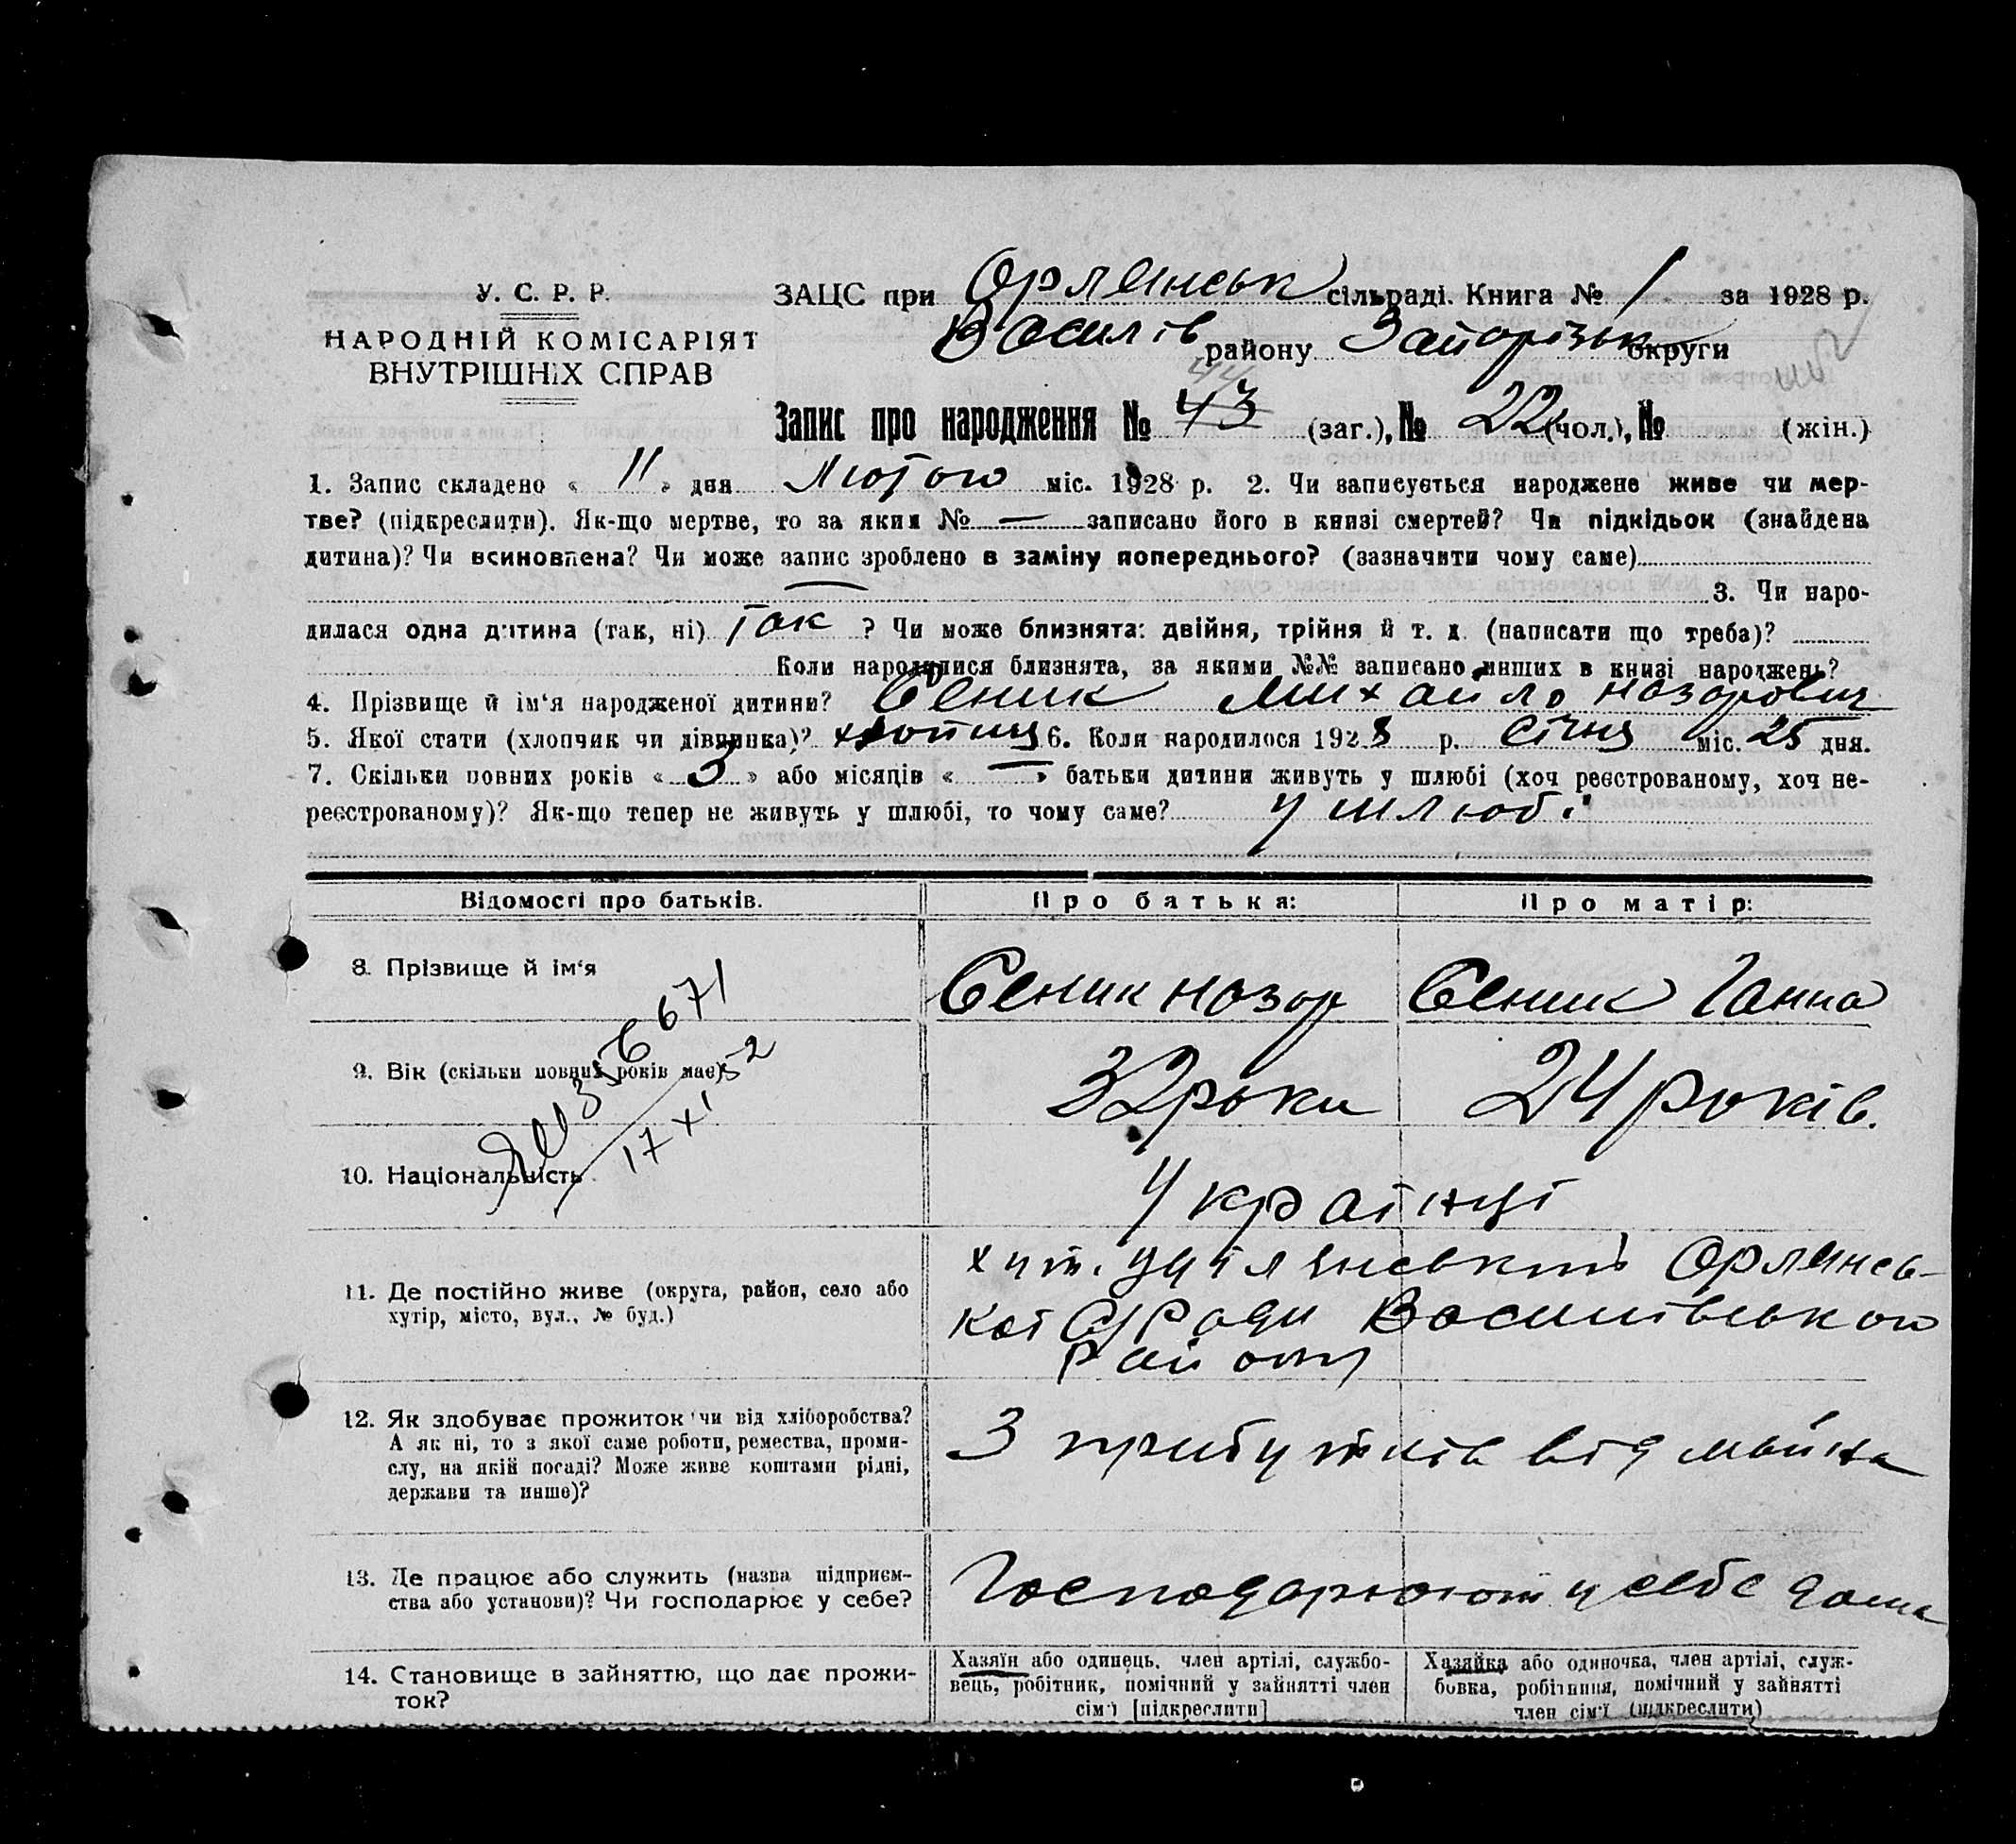 У. С. Р. Р.
НАРОДНІЙ КОМІСАРІЯТ
ВНУТРІШНіХ СПРАВ
ЗАЦС при Орлянськ сільраді. Книга № 1 за 1928 р.
Василів району Запорізьк округи
44
Запис про народження № 43 (заг.), № 22 (чол.), № (жін.)
1. Запис складено « 11 » дня Лютого міс. 1928 р. 2. Чи записується народжене живе чи мер-
тве? (підкреслити). Як-що мертве, то за яким № — записано його в книзі смертей? Чи підкідьок (знайдена
дитина)? Чи всиновлена? Чи може запис зроблено в заміну попереднього? (зазначити чому саме)
— 3. Чи наро-
дилася одна дитина (так, ні) Так ? Чи може близнята: двійня, трійня й т. д. (написати що треба)?
Коли народилися близнята, за якими №№ записано инших в книзі народжень?
4. Прізвище й ім'я народженої дитини? Сеник Михайло Назарович
5. Якої стати (хлопчик чи дівчинка)? 6. Коли народилося 1928 р. Січня міс. 25 дня.
7. Скільки повних років « 3 » або місяців « — » батьки дитини живуть у шлюбі (хоч реєстрованому, хоч не-
реєстрованому)? Як-що тепер не живуть у шлюбі, то чому саме? у шлюбі
Відомості про батьків.
Про батька:
Про матір:
8. Прізвище й ім'я
Сеник Назар
Сеник Ганна
9. Вік (скільки повних років має)
32 роки
24 років.
17 XI 52
10. Національність
Українці
11. Де постійно живе (округа, район, село або
хутір, місто, вул., № буд.)
хут. Орлянсь-
кої с/ради Василівського
району
12. Як здобуває прожиток чи від хліборобства?
А як ні, то з якої саме роботи, ремества, проми-
слу, на якій посаді? Може живе коштами рідні,
держави та инше)?
З прибутків від майна
13. Де працює або служить (назва підприєм-
ства або установи)? Чи господарює у себе?
Господарюють у себе дома
14. Становище в зайняттю, що дає прожи-
ток?
Хазяїн або одинець, член артілі, службо-
вець, робітник, помічний у зайнятті член
сім'ї [підкреслити]
Хазяйка або одиночка, член артілі, служ-
бовка, робітниця, помічний у зайнятті
член сім'ї (підкреслити)